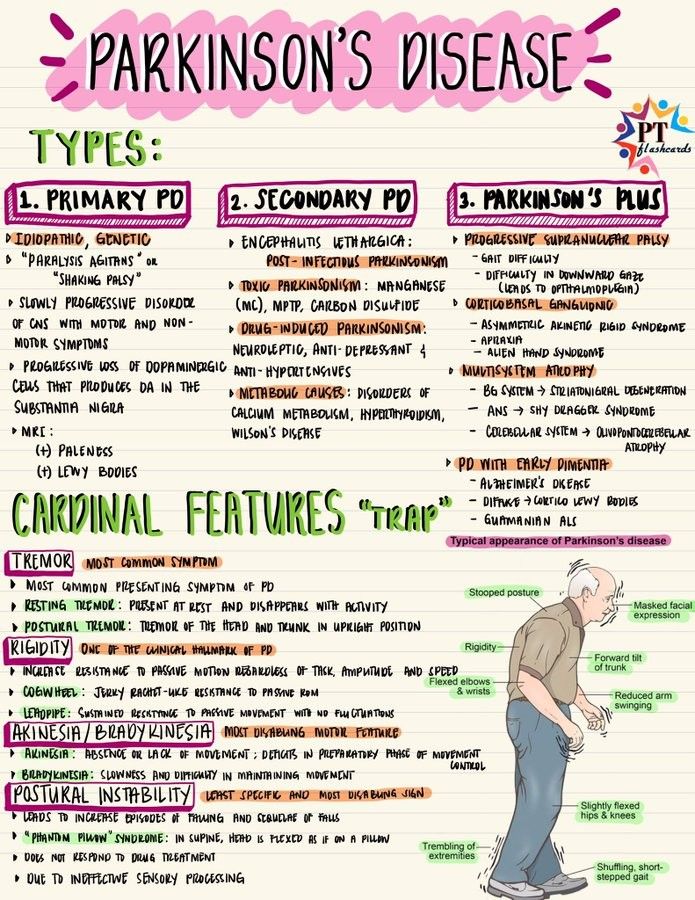 PARKINSON'S DISEASE
PT
flashcards
TYPES:
1. PRIMARY PD
▸ IDIOPATHIC, GENETIC
▸ "PARALYSIS AGITANS" OR
"SHAKING PALSY"
▸ SLOWLY PROGRESSIVE DISORDER
OF CNS WITH MOTOR AND NON-
MOTOR SYMPTOMS
▸ PROGRESSIVE LOSS OF DOPAMINERGIC
CELLS THAT PRODUCES DA IN THE
SUBSTANTIA NIGRA
▸ MRI:
(+) PALENESS
(+) LEWY BODIES
2. SECONDARY PD
▸ ENCEPHALITIS LETHARGICA:
POST-INFECTIOUS PARKINSONISM
▸ TOXIC PARKINSONISM: MANGANESE
(MC), MPTP, CARBON DISULFIDE
▸ DRUG-INDUCED PARKINSONISM:
NEUROLEPTIC, ANTI-DEPRESSANT &
ANTI-HYPERTENSIVES
▸ METABOLIC CAUSES: DISORDERS OF
CALCIUM METABOLISM, HYPERTHYROIDISM,
WILSON'S DISEASE
3. PARKINSON'S PLUS
▸ PROGRESSIVE SUPRANUCLEAR PALSY
- GAIT DIFFICULTY
- DIFFICULTY IN DOWNWARD GAZE
(LEADS TO OPTHALMOPLEGIA)
▸ CORTICOBASAL GANGLIONIC
- ASYMMETRIC AKINETIC RIGID SYNDROME
- APRAXIA
- ALIEN HAND SYNDROME
▸ MULTISYSTEM ATROPHY
- BG SYSTEM → STRIATONIGRAL DEGENERATION
- ANS → SHY DRAGGER SYNDROME
- CEREBELLAR SYSTEM → OLIVOPONTOCEREBELLAR
ATROPHY
▸ PD WITH EARLY DIMENTIA
- ALZHEIMER'S DISEASE
- DIFFUSE → CORTICO LEWY BODIES
- GUAMANIAN ALS
CARDINAL FEATURES "TRAP"
TREMOR MOST COMMON SYMPTOM
▸ MOST COMMON PRESENTING SYMPTOM OF PD
▸ RESTING TREMOR: PRESENT AT REST AND DISAPPEARS WITH ACTIVITY
▸ POSTURAL TREMOR: TREMOR OF THE HEAD AND TRUNK IN UPRIGHT POSITION
RIGIDITY ONE OF THE CLINICAL HALLMARK OF PD
▸ INCREASE RESISTANCE TO PASSIVE MOTION REGARDLESS OF TASK, AMPLITUDE AND SPEED
▸ COGWHEEL: JERKY RACHET-LIKE RESISTANCE TO PASSIVE ROM
▸ LEADPIPE: SUSTAINED RESISTANCE TO PASSIVE MOVEMENT WITH NO FLUCTUATIONS
AKINESIA/BRADYKINESIA MOST DISABLING MOTOR FEATURE
▸ AKINESIA: ABSENCE OR LACK OF MOVEMENT; DEFICITS IN PREPARATORY PHASE OF MOVEMENT
CONTROL
▸ BRADYKINESIA: SLOWNESS AND DIFFICULTY IN MAINTAINING MOVEMENT
POSTURAL INSTABILITY LEAST SPECIFIC AND MOST DISABLING SIGN
▸ LEADS TO INCREASE EPISODES OF FALLING AND SEQUELAE OF FALLS
▸ "PHANTOM PILLOW" SYNDROME: IN SUPINE, HEAD IS FLEXED AS IF ON A PILLOW
▸ DOES NOT RESPOND TO DRUG TREATMENT
▸ DUE TO INEFFECTIVE SENSORY PROCESSING
Typical appearance of Parkinson's disease
Stooped posture
Masked facial
expression
Rigidity
Forward tilt
of trunk
Flexed elbows
& wrists
Reduced arm
swinging
Slightly flexed
hips & knees
Trembling of
extremities
Shuffling, short-
stepped gait